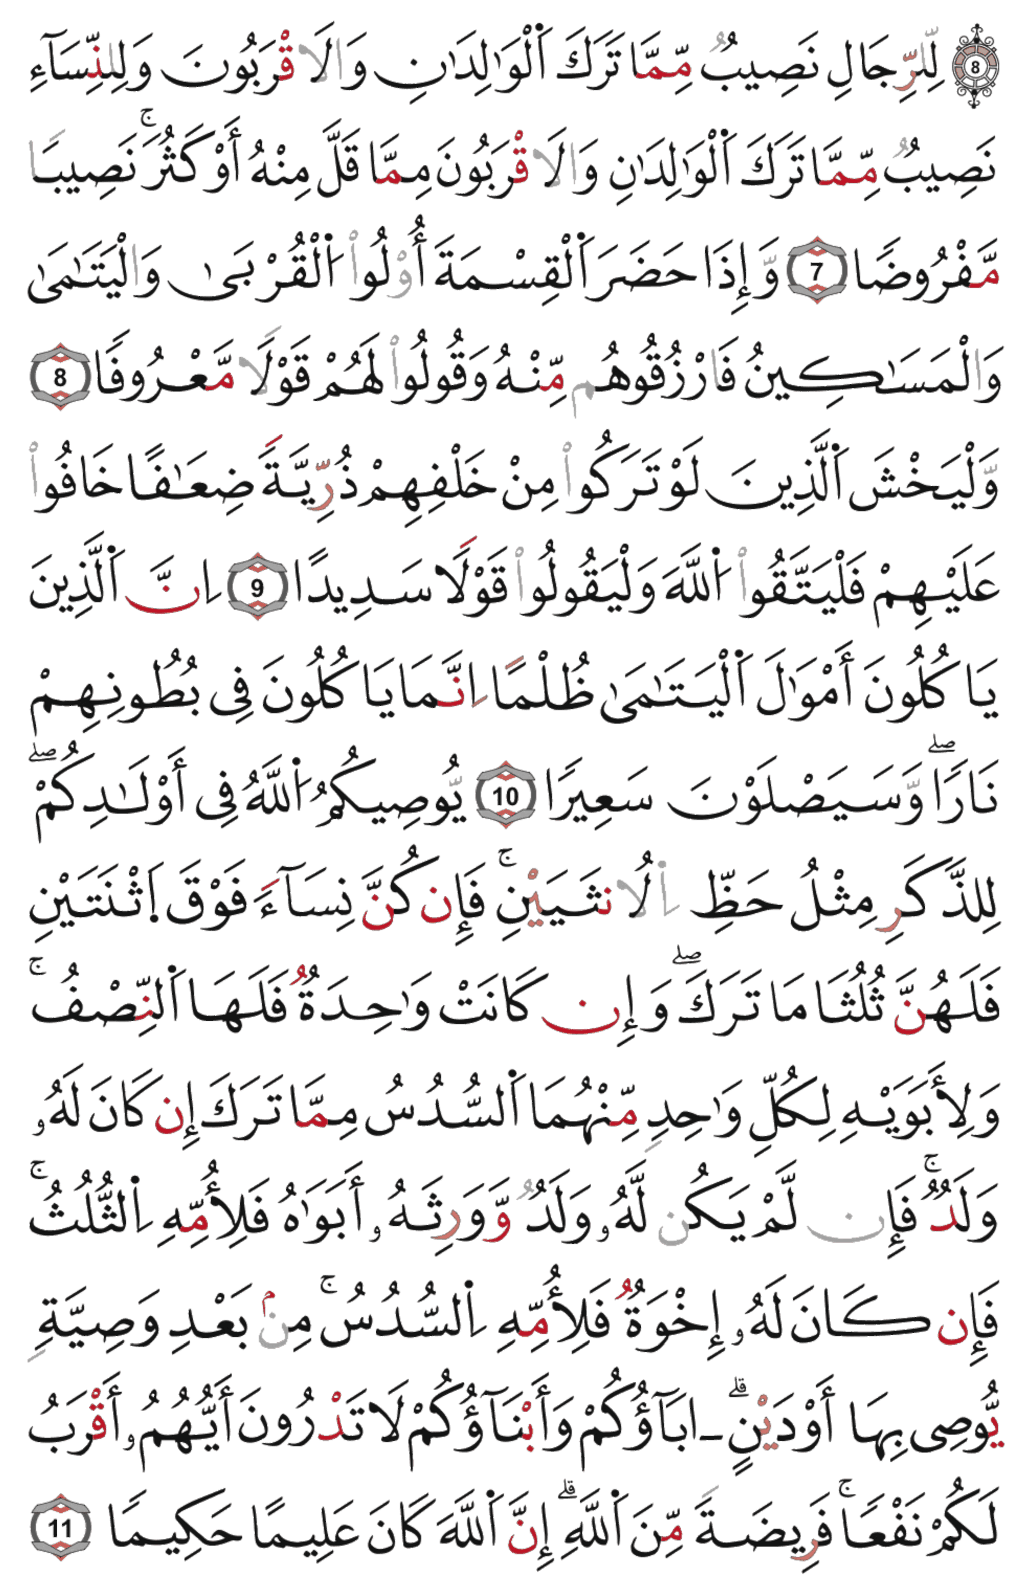 8 لِّلرِّجَالِ نَصِيبٌ مِّمَّا تَرَكَ اَ۬لْوَٰلِدَٰنِ وَالَاقْرَبُونَ وَلِلنِّسَآءِ
نَصِيبٌ مِّمَّا تَرَكَ اَ۬لْوَٰلِدَٰنِ وَالَاقْرَبُونَ مِمَّا قَلَّ مِنْهُ أَوْ كَثُرَۚ نَصِيبًا
مَّفْرُوضًا 7 وَّإِذَا حَضَرَ اَ۬لْقِسْمَةَ أُوْلُواْ اُ۬لْقُرْبَىٰ وَالْيَتَٰمَىٰ
وَالْمَسَٰكِينُ فَارْزُقُوهُم مِّنْهُ وَقُولُواْ لَهُمْ قَوْلًا مَّعْرُوفًا 8
وَّلْيَخْشَ اَ۬لَّذِينَ لَوْ تَرَكُواْ مِنْ خَلْفِهِمْ ذُرِّيَّةً ضِعَٰفًا خَافُواْ
عَلَيْهِمْ فَلْيَتَّقُواْ اُ۬للَّهَ وَلْيَقُولُواْ قَوْلًا سَدِيدًا 9 اِنَّ اَ۬لَّذِينَ
يَاكُلُونَ أَمْوَٰلَ اَ۬لْيَتَٰمَىٰ ظُلْمًا اِنَّمَا يَاكُلُونَ فِى بُطُونِهِمْ
نَارًاۖ وَّسَيَصْلَوْنَ سَعِيرًا 10 يُّوصِيكُمُ اُ۬للَّهُ فِى أَوْلَٰدِكُمْۖ
لِلذَّكَرِ مِثْلُ حَظِّ اِ۬لُانثَيَيْنِۚ فَإِن كُنَّ نِسَآءً فَوْقَ اَ۪ثْنَتَيْنِ
فَلَهُنَّ ثُلُثَا مَا تَرَكَۖ وَإِن كَانَتْ وَٰحِدَةٌ فَلَهَا اَ۬لنِّصْفُۚ
وَلِأَبَوَيْهِ لِكُلِّ وَٰحِدٍ مِّنْهُمَا اَ۬لسُّدُسُ مِمَّا تَرَكَ إِن كَانَ لَهُۥ
وَلَدٌۚ فَإِن لَّمْ يَكُن لَّهُۥ وَلَدٌ وَّوَرِثَهُۥ أَبَوَٰهُ فَلِأُمِّهِ اِ۬لثُّلُثُۚ
فَإِن كَانَ لَهُۥ إِخْوَةٌ فَلِأُمِّهِ اِ۬لسُّدُسُۚ مِنۢ بَعْدِ وَصِيَّةٍ
يُّوصِى بِهَا أَوْ دَيْنٍۗ ـ ابَآؤُكُمْ وَأَبْنَآؤُكُمْ لَا تَدْرُونَ أَيُّهُمُۥ أَقْرَبُ
لَكُمْ نَفْعًاۚ فَرِيضَةً مِّنَ اَ۬للَّهِۗ إِنَّ اَ۬للَّهَ كَانَ عَلِيمًا حَكِيمًا 11